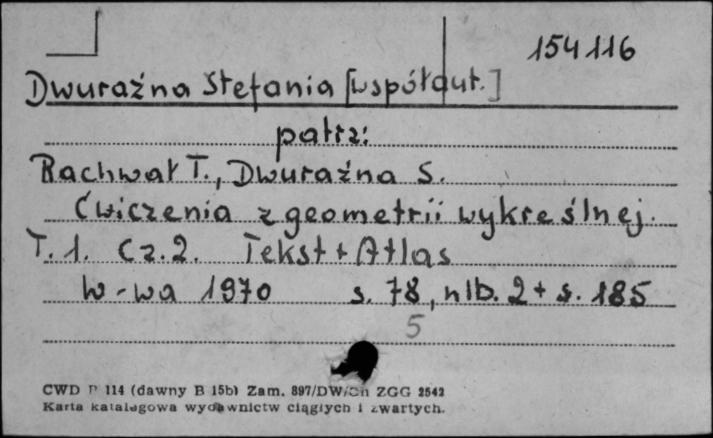 154116
Dwuraźna Stefania [współaut.]
patrz:
Rachwał T., Dwuraźna S.
Ćwiczenia z geometrii wykreślnej.
T. 1. Cz. 2. Tekst + Atlas
W-wa 1970 s. 78, nlb. 2 + s. 185
5
CWD P 114 (dawny B 15b) Zam. 897/DW/Sn ZGG 2542
Karta katalogowa wydawnictw ciągłych i zwartych.